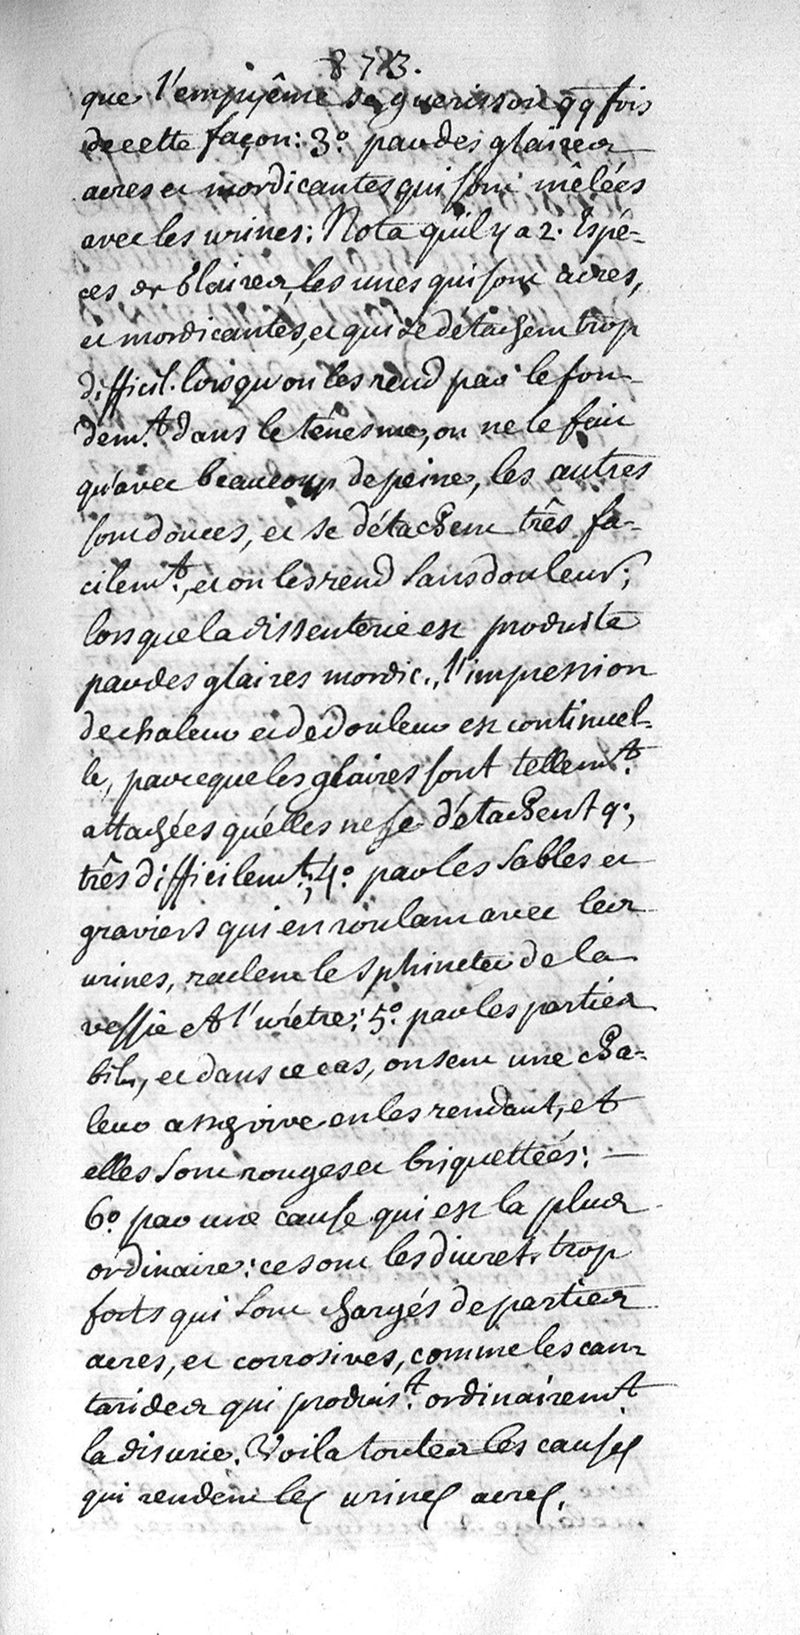 873.
que l'empyême se guerissoit qq fois
de cette façon: 3.º par des glaires
acres et mordicantes qui sont mêlées
avec les urines: Nota qu'il y a 2. Espé-
ces de Glaires, les unes qui sont acres,
et mordicantes, et qui se détachent trop
difficil. lorsqu'on les rend par le fon-
dem.t dans le ténesme, on ne le fait
qu'avec beaucoup de peine, les autres
sont douces, et se détachent três fa-
cilem.t, et on les rend sans douleur;
lorsque la dissenterie est produite
par des glaires mordic., l'impression
de chaleur et de douleur est continuel-
le, parceque les glaires sont tellem.t
attachées qu'elles ne se détachent q.,
três difficilem.t; 4.º par les sables et
graviers qui en roulant avec les
urines, raclent le sphincter de la
vessie et l'urétre: 5.º par les parties
bil., et dans ce cas, on sent une cha-
leur assez vive en les rendant, et
elles sont rouges et briquettées: —
6.º par une cause qui est la plus
ordinaire: ce sont les diuret. trop
forts qui sont chargés de parties
acres, et corrosives, comme les can-
tarides qui produis.t ordinairem.t
la disurie. Voila toutes les causes
qui rendent les urines acres.